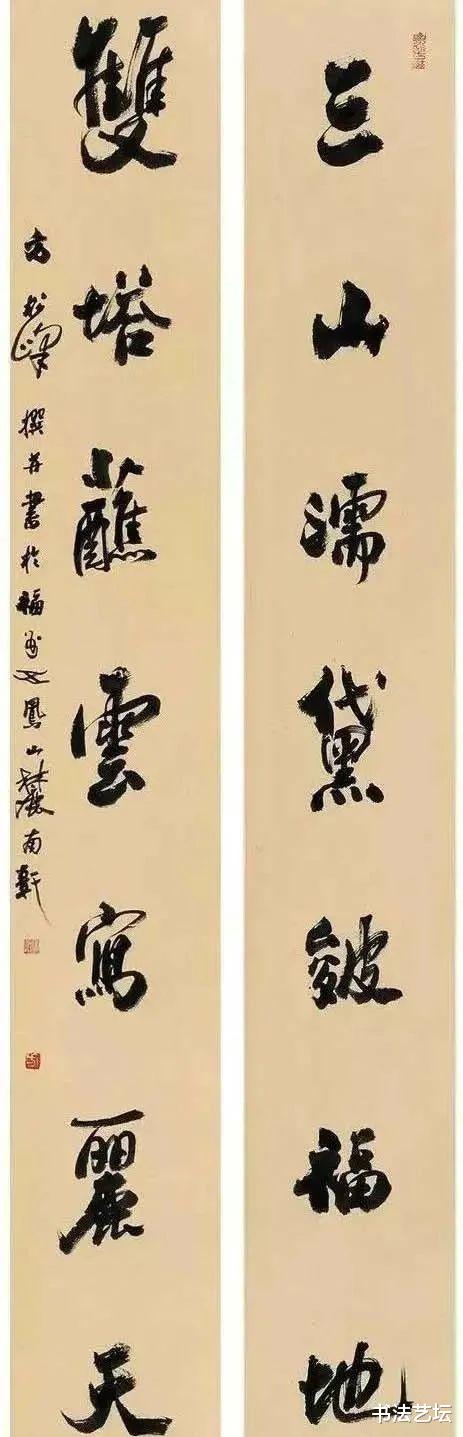 三山濡黛皴福地
雙塔蘸雲寫麗天
方松峰撰并書於福州五鳳山麓南軒
书法艺坛